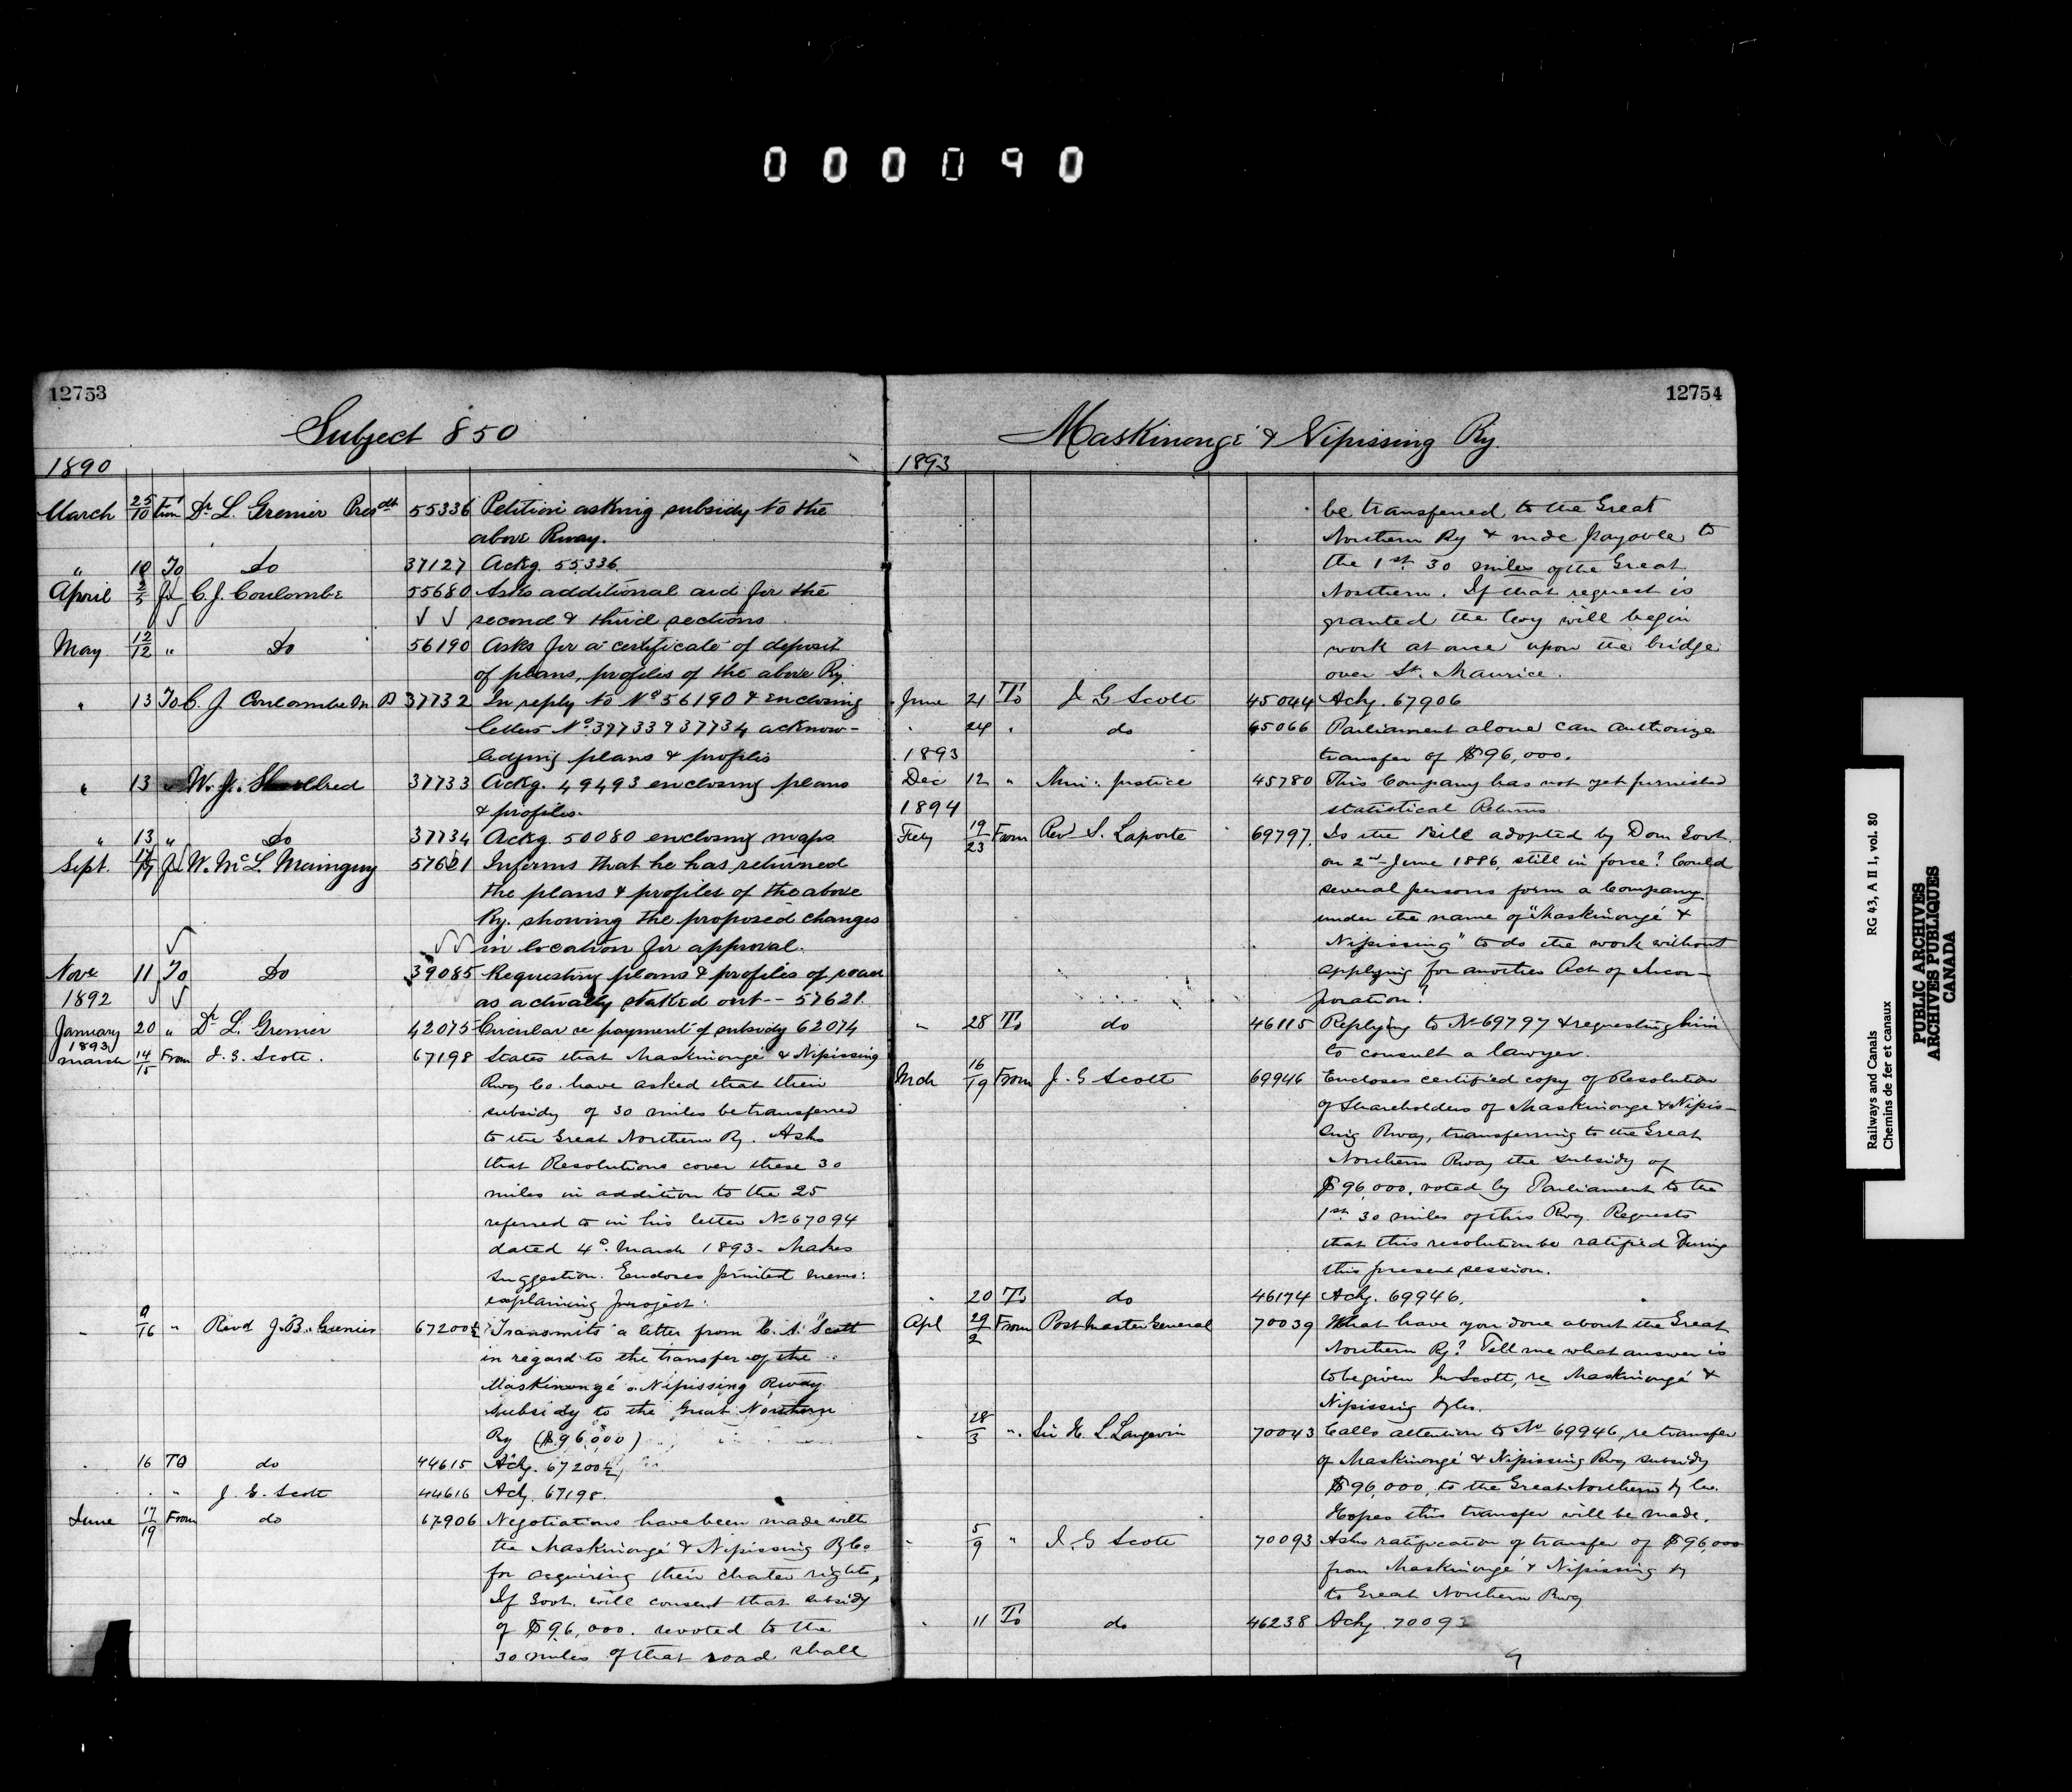 000090
12753
Subject 850
1890
March 25/10 from Dr. L. Grenier Presdt 55336 Petition asking subsidy to the
above Rway.
" 10 To Do 37127 Ackg. 55336
April 2/5 C. J. Coulombe 55680 Asks additional aid for the
√ √ second & third sections
May 12/12 " Do 56190 Asks for a certificate of deposit
of plans, profiles of the above Ry.
" 13 To C. J. Coulombe 37732 In reply to No 56190 & enclosing
letters No 37733 & 37734 acknow-
ledging plans & profiles
" 13 W. J. 37733 Ackg. 49493 enclosing plans
& profiles.
" 13 " Do 37734 Ackg. 50080 enclosing maps
Sept. W. McL. Mainguy 57621 Informs that he has returned
the plans & profiles of the above
Ry. showing the proposed changes
√√ in location for approval.
Nove 11 To Do 39085 Requesting plans & profiles of road
1892 as actually staked out -- 57621
January 20 " Dr L. Grenier 42075 Circular re payment of subsidy 62074
1893
March 14/15 From J. G. Scott. 67198 States that Maskinongé & Nipissing
Rwy Co. have asked that their
subsidy of 30 miles be transferred
to the Great Northern Ry. Asks
that Resolutions cover these 30
miles in addition to the 25
referred to in his letter No 67094
dated 4th March 1893. Makes
suggestion. Encloses printed memo:
explaining project.
/16 " Revd J. B. Grenier 67200½ Transmits a letter from Scott
in regard to the transfer of the
Maskinongé & Nipissing Rway
subsidy to the Great Northern
Ry ($96,000)
16 To do 44615 Ackg. 67200½
" J. G. Scott 44616 Ackg. 67198.
June 17/19 From do 67906 Negotiations have been made with
the Maskinongé & Nipissing Ry Co
for acquiring their charter rights,
If Govt. will consent that subsidy
of $96,000. revoted to the
30 miles of that road shall
12754
Maskinongé & Nipissing Ry.
1893
be transferred to the Great
Northern Ry & made payable to
the 1st 30 miles of the Great
Northern. If that request is
granted the Coy will begin
work at once upon the bridge
over St. Maurice.
June 21 To J G Scott 45044 Ackg. 67906
" 24 " do 45066 Parliament alone can authorize
1893 transfer of $96,000.
Dec 12 " Min: Justice 45780 This Company has not yet furnished
1894 statistical Returns
Feby 19/23 From Revd S. Laporte 69797. Is the Bill adopted by Dom Govt.
on 2nd June 1886, still in force? Could
several persons form a Company
under the name of "Maskinongé &
Nipissing" to do the work without
applying for another Act of Incor-
poration?
" 28 To do 46115 Replying to No 69797 & requesting him
to consult a lawyer.
Mch 16/19 From J. G Scott 69946 Encloses certified copy of Resolution
of Shareholders of Maskinongé & Nipis-
sing Rway, transferring to the Great
Northern Rway the subsidy of
$96,000, voted by Parliament to the
1st 30 miles of this Rwy. Requests
that this resolution be ratified During
this present session.
" 20 To do 46174 Ackg. 69946.
Apl 29/2 From Postmaster General 70039 What have you done about the Great
Northern Ry? Tell me what answer is
to be given Mr Scott, re Maskinongé &
Nipissing
28/3 " Sir H. L. Langevin 70043 Calls attention to No 69946, re transfer
of Maskinongé & Nipissing Rwy subsidy
$96,000, to the Great Northern Ry Co.
Hopes this transfer will be made.
" 5/9 " J. G Scott 70093 Asks ratification of transfer of $96,000
from Maskinongé & Nipissing Ry
to Great Northern Rwy
" 11 To do 46238 Ackg. 70093
Railways and Canals RG 43, A II 1, vol. 80
Chemins de fer et canaux
PUBLIC ARCHIVES
ARCHIVES PUBLIQUES
CANADA